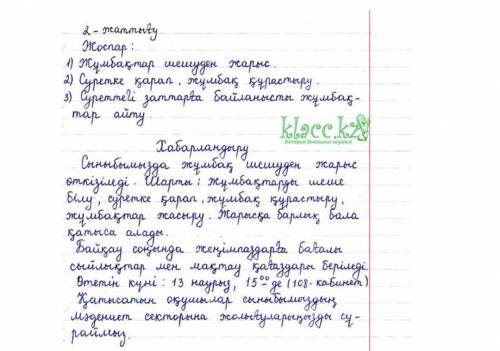 2 - жаттығу
Жоспар :
1) Жұмбақтар шешуден жарыс.
2) Суретке қарап, жұмбақ құрастыру.
3) Суреттегі заттарға байланысты жұмбақ-
тар айту.
klacc.kz
Готовые домашние задания
Хабарландыру
Сыныбымызда жұмбақ шешуден жарыс
өткізіледі. Шарты : жұмбақтарды шеше
білу, суретке қарап, жұмбақ құрастыру,
жұмбақтар жасыру. Жарысқа барлық бала
қатыса алады.
Байқау соңында жеңімпаздарға бағалы
сыйлықтар мен мақтау қағаздары беріледі.
Өтетін күні : 13 наурыз, 15⁰⁰ де (108-кабинет)
Қатысатын оқушылар сыныбымыздың
мәдениет секторына жолығуларыңызды сұ-
раймыз.